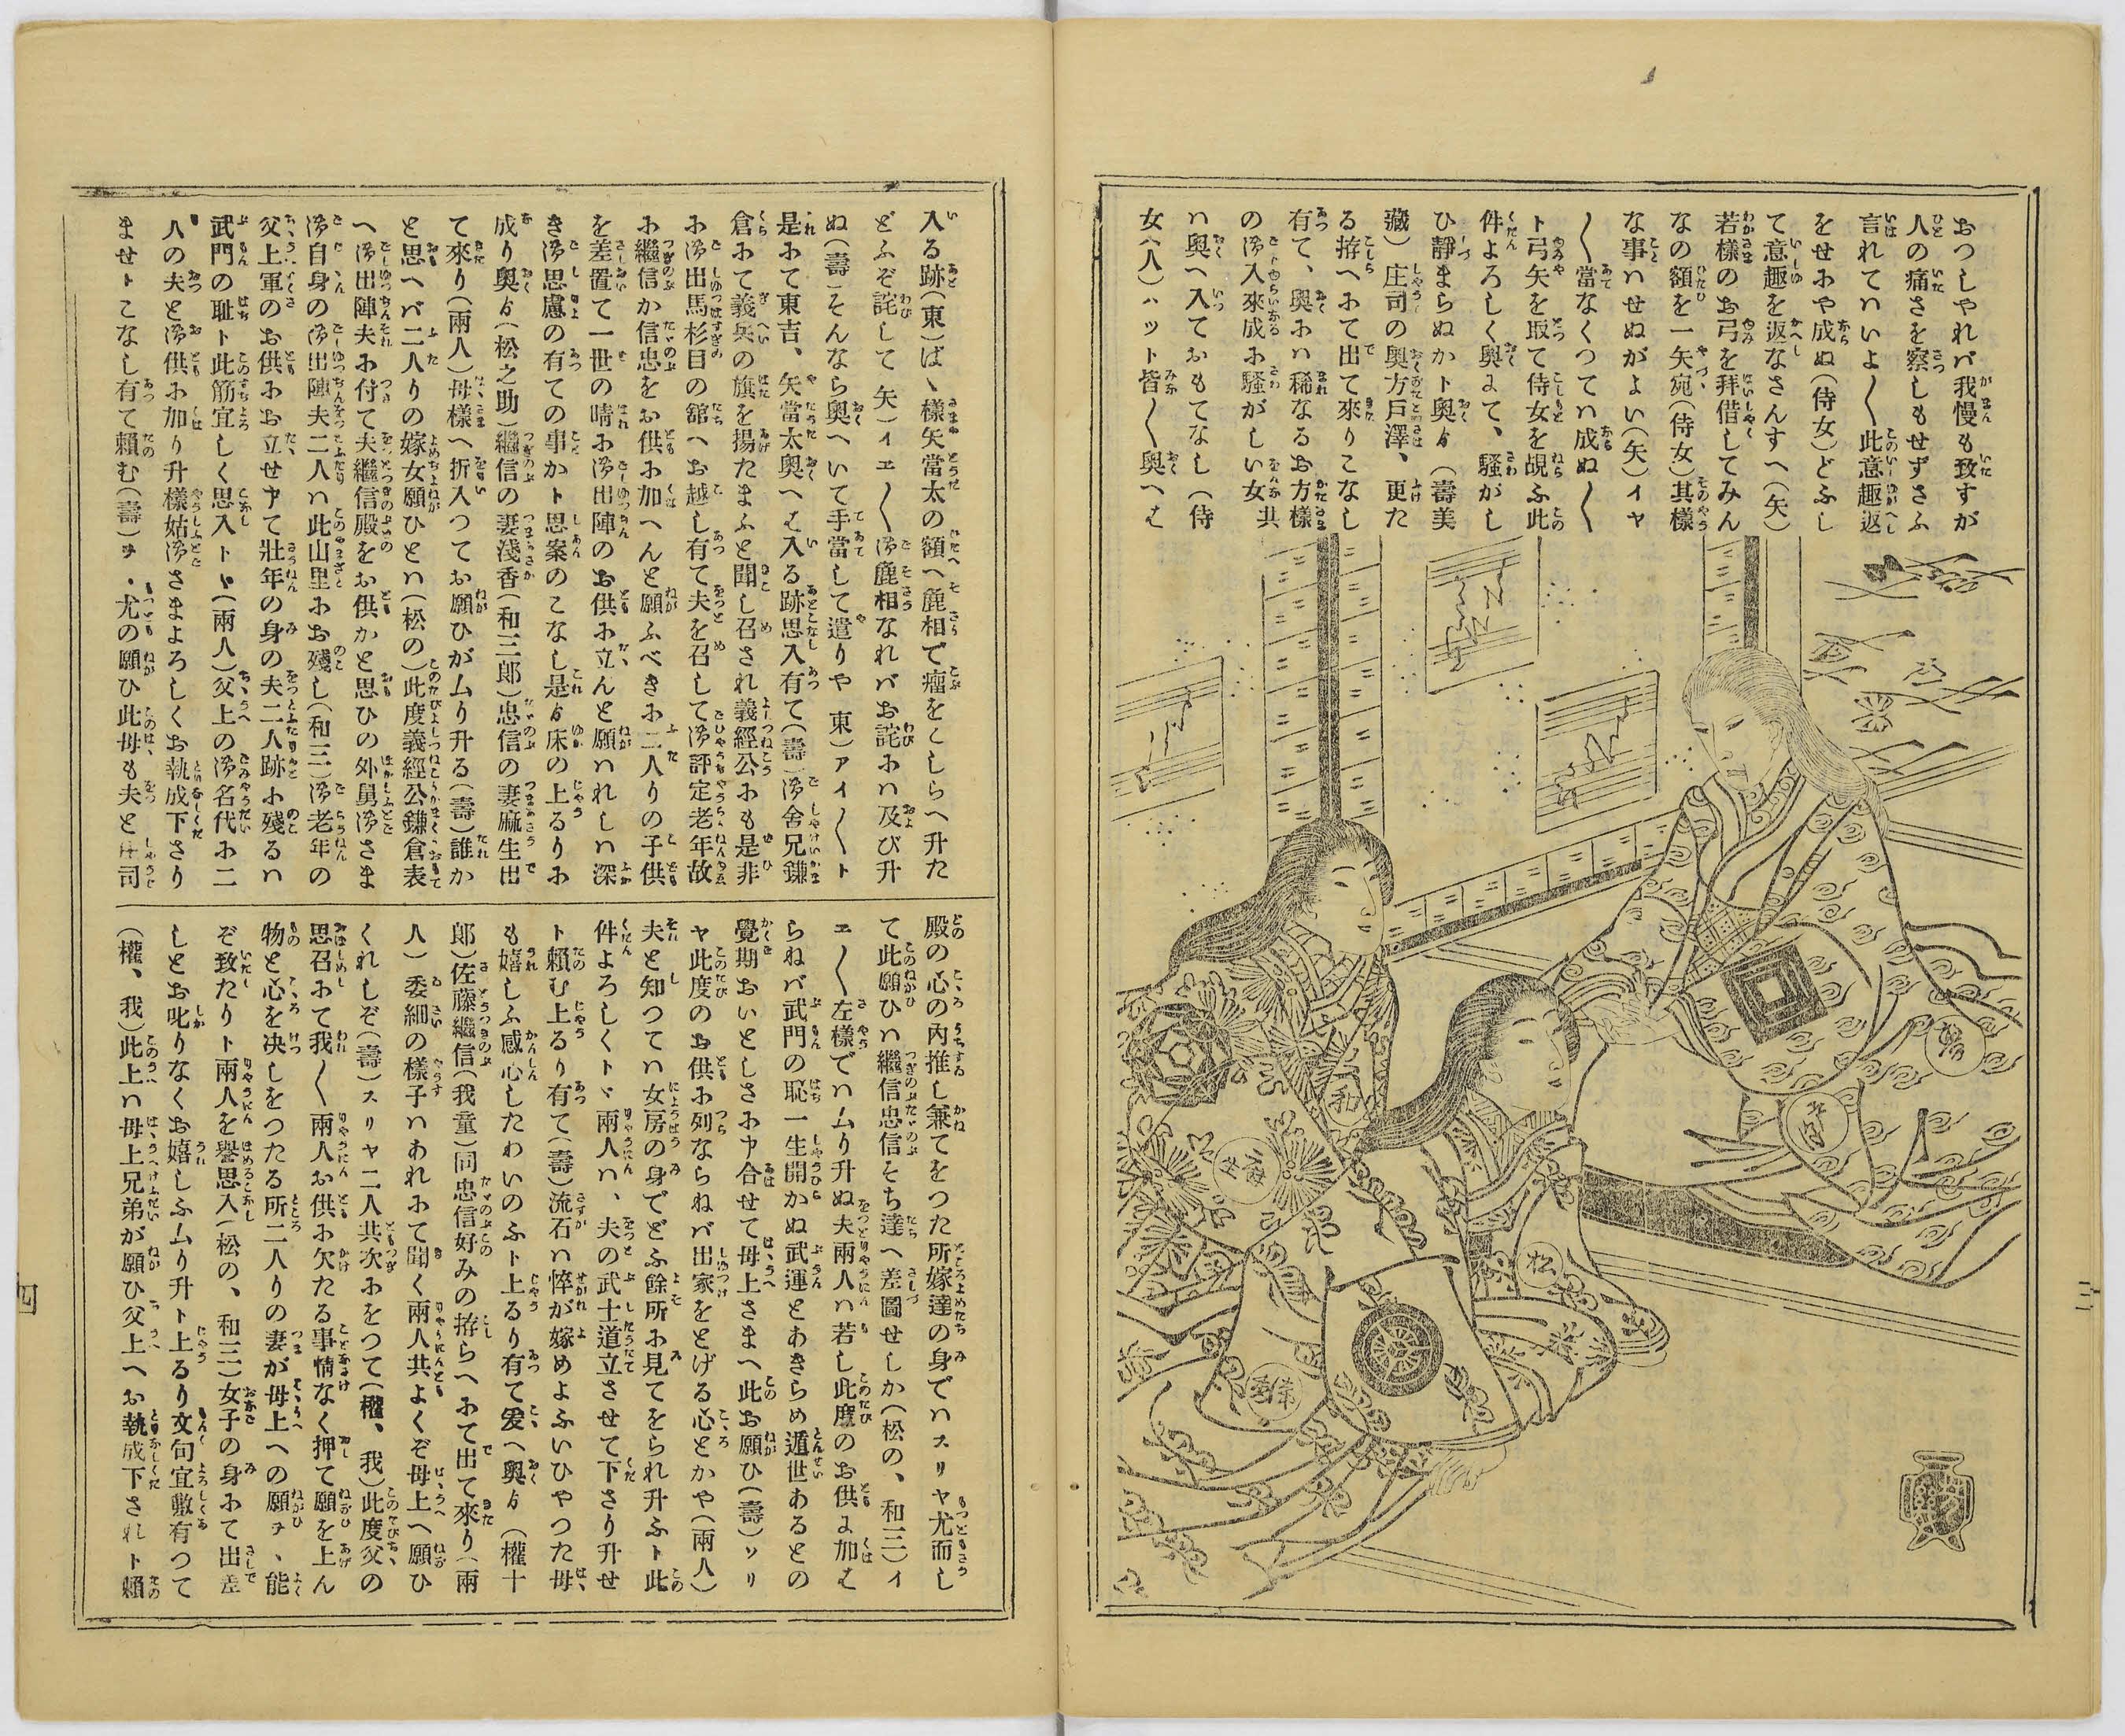 おつしやれバ我慢も致すが
人の痛さを察しもせずさふ
言れてハいよ〱此意趣返
をせにや成ぬ(侍女)どふし
て意趣を返なさんすへ(矢)
若様のお弓を拜借してみん
なの額を一矢宛(侍女)其様
な事ハせぬがよい(矢)イヤ
〱當なくつてハ成ぬ〱
ト弓矢を取て侍女を覘ふ此
件よろしく奥にて、騒がし
ひ静まらぬかト奥ゟ(壽美
藏)庄司の奥方戸澤、更た
る拵へにて出て來りこなし
有て、奥にハ稀なるお方様
の御入來成に騒がしい女共
ハ奥へ入ておもてなし(侍
女八人)ハット皆〱奥へは
壽
平内
和
麻生
松
浅香
三
入る跡(東)ばゝ様矢當太の額へ麁相で瘤をこしらへ升た
どふぞ詫して 矢)イエ〱御麁相なれバお詫にハ及び升
ぬ(壽)そんなら奥へいて手當して遣りや 東)アイ〱ト
是にて東吉、矢當太奥へは入る跡思入有て(壽)御舍兄鎌
倉にて義兵の旗を揚たまふと聞し召され義經公にも是非
に御出馬杉目の舘へお越し有て夫を召して御評定老年故
に繼信か信忠をお供に加へんと願ふべきに二人りの子供
を差置て一世の晴に御出陣のお供に立んと願ハれしハ深
き御思慮の有ての事かト思案のこなし是ゟ床の上るりに
成り奥ゟ(松之助)繼信の妻淺香(和三郎)忠信の妻麻生出
て來り(兩人)母様へ折入つてお願ひがムり升る(壽)誰か
と思へバ二人りの嫁女願ひとハ(松の)此度義經公鎌倉表
へ御出陣夫に付て夫繼信殿をお供かと思ひの外舅御さま
御自身の御出陣夫二人ハ此山里にお殘し(和三)御老年の
父上軍のお供にお立せ申て壯年の身の夫二人跡に殘るハ
武門の耻ト此筋宜しく思入ト(兩人)父上の御名代に二
人の夫と御供に加り升様姑御さまよろしくお執成下さり
ませトこなし有て頼む(壽)ヲ、尤の願ひ此母も夫と庄司
殿の心の内推し兼てをつた所嫁達の身でハスリヤ尤而し
て此願ひハ繼信忠信そち達へ差圖せしか(松の、和三)イ
エ〱左様でハムり升ぬ夫兩人ハ若し此度のお供に加は
らねバ武門の恥一生開かぬ武運とあきらめ遁世あるとの
覺期おいとしさに申合せて母上さまへ此お願ひ(壽)ソリ
ヤ此度のお供に列ならねバ出家をとげる心とかや(兩人)
夫と知つてハ女房の身でどふ餘所に見てをられ升ふト此
件よろしくトヾ兩人ハ、夫の武士道立させて下さり升せ
ト頼む上るり有て(壽)流石ハ悴が嫁めよふいひやつた母
も嬉しふ感心したわいのふト上るり有て爰へ奥ゟ(權十
郎)佐藤繼信(我童)同忠信好みの拵らへにて出て來り(兩
人)委細の様子ハあれにて聞く兩人共よくぞ母上へ願ひ
くれしぞ(壽)スリヤ二人共次にをつて(權、我)此度父の
思召にて我〱兩人お供に欠たる事情なく押て願を上ん
物と心を决しをつたる所二人りの妻が母上への願ヲ、能
ぞ致たりト兩人を譽思入(松の、和三)女子の身にて出差
しとお叱りなくお嬉しふムり升ト上るり文句宜敷有つて
(權、我)此上ハ母上兄弟が願ひ父上へお執成下されト頼
四